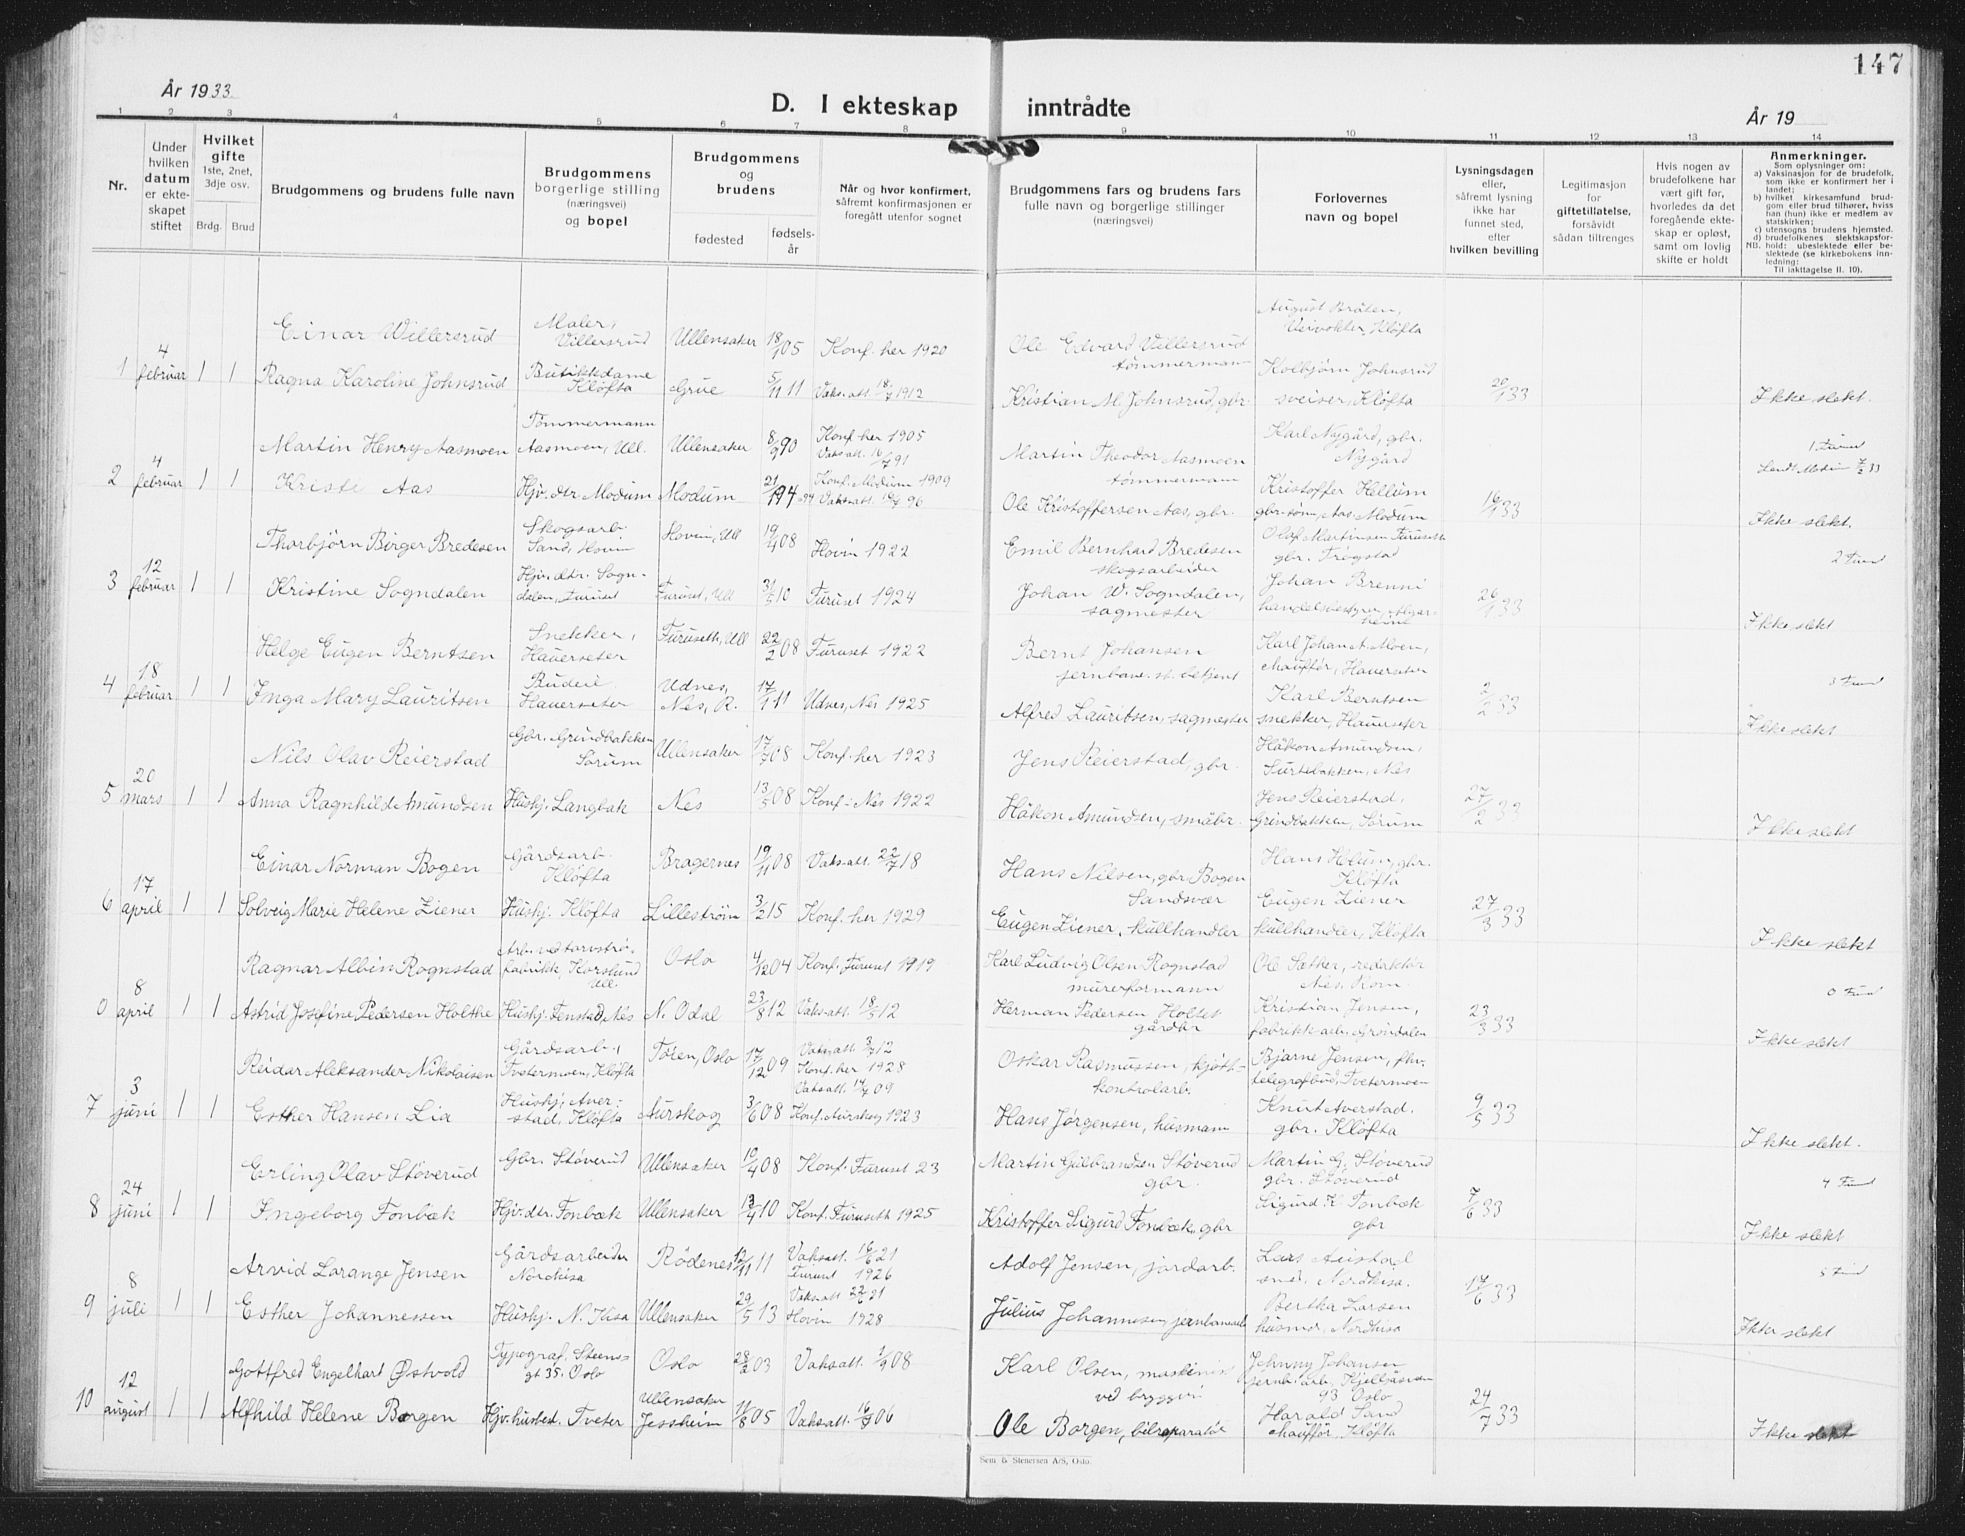 147
År 1933.
D. I ekteskap inntrådte
År 19
1 2 3 4 5 6 7 8 9 10 11 12 13 14
Nr.
Under hvilken datum er ekteskapet stiftet
Hvilket gifte 1ste, 2net, 3dje osv.
Brdg. Brud
Brudgommens og brudens fulle navn
Brudgommens borgerlige stilling (næringsvei) og bopel
Brudgommens og brudens
fødested
fødselsår
Når og hvor konfirmert, såfremt konfirmasjonen er foregått utenfor sognet
Brudgommens fars og brudens fars fulle navn og borgerlige stillinger (næringsvei)
Forlovernes navn og bopel
Lysningsdagen eller, såfremt lysning ikke har funnet sted, efter hvilken bevilling
Legitimasjon for giftetillatelse, forsåvidt sådan tiltrenges
Hvis nogen av brudefolkene har vært gift før, hvorledes da det foregående ekteskap er opløst, samt om lovlig skifte er holdt
Anmerkninger.
Som oplysninger om:
a) Vaksinasjon for de brudefolk, som ikke er konfirmert her i landet;
b) hvilket kirkesamfund brudgom eller brud tilhører, hviss han (hun) ikke er medlem av statskirken;
c) utensogns brudens hjemsted.
d) brudefolkenes slektskapsforhold: ubeslektede eller beslektede (se kirkebokens innledning:
NB. Til iakttagelse II. 10).
1 4 februar 1 1
Einar Willersrud Maler, Villersrud Ullensaker 18/1 05 Konf. her 1920 Ole Edvard Villersrud tømmermann August Bråten, Veivokter, Kløfta
Ragna Karoline Johnsrud Butikkdame Kløfta Grue 5/11 11 Vaks.att. 18/7 1912 Kristian M. Johnsrud, gbr. Kolbjørn Johnsrud sveiser, Kløfta 20/1 33 Ikke slekt.
2 4 februar 1 1
Martin Henry Aasmoen Tømmermann Aasmoen, Ull. Ullensaker 8/9 90 Konf. her 1905 Vaksatt. 16/7 91 Martin Theodor Aasmoen tømmermann Karl Nygård, gbr. Nygård
Kriste Aas Hjv. dtr. Modum Modum Konf. Modum 1909 Ole Kristoffersen Aas, gbr. Kristoffer Hellum Aas, Modum 16/1 33 Ikke slekt.
3 12 februar 1 1
Thorbjørn Birger Bredesen Skogsarb. Sand, Hovin Hovin, Ull 19/4 08 Hovin 1922 Emil Bernhard Bredesen skogsarbeider Olaf Martinsen Furuseth gbr. Trøgstad
Kristine Sogndalen Hjv. dtr. Sogndalen, Furuset Furuset, Ull 31/5 10 Furuset 1924 Johan W. Sogndalen, sagmester Johan Brenni 26/1 33 Ikke slekt
4 18 februar 1 1
Helge Eugen Berntsen Snekker, Hauerseter Furuseth, Ull 22/2 08 Furuset 1922 Bernt Johansen jernbane. st. betjent Karl Johan A. Moen, chauffør, Hauerseter
Inga Mary Lauritsen Budeie Hauerseter Udnes, Nes, R. 17/1 11 Udnes, Nes 1925 Alfred Lauritsen, sagmester Karl Berntsen snekker, Hauerseter 2/2 33 Ikke slekt
5 20 mars 1 1
Nils Olav Reierstad Gbr. Grindbakken Sørum Ullensaker 17/7 08 Konf. her 1923 Jens Reierstad, gbr. Håkon Amundsen, Surtebakken, Nes
Anna Ragnhild Amundsen Hushj. Langbak Nes 13/5 08 Konf. i Nes 1922 Håkon Amundsen, småbr. Jens Reierstad, Grindbakken, Sørum 27/2 33 Ikke slekt
6 17 april 1 1
Einar Norman Bogen Gårdsarb. Kløfta Bragernes 19/11 08 Vaksatt. 22/7 18 Hans Nilsen, gbr. Bogen Sandsvær Hans Holum, gbr. Kløfta
Solveig Marie Helene Ziener Hushj. Kløfta Lillestrøm 3/2 15 Konf. her 1929 Eugen Ziener, kullhandler Eugen Ziener kullhandler, Kløfta 27/3 33 Ikke slekt
0 8 april 1 1
Ragnar Albin Rognstad Arb. ved torvstrøfabrikk, Korslund Ull. Oslo 4/12 04 Konf. Furuset 1919 Karl Ludvig Olsen Rognstad murerformann Ole Sæther, redaktør Nes, Rom.
Astrid Josefine Pedersen Holthe Hushj. Fenstad, Nes N. Odal 23/8 12 Vaksatt. 18/5 12 Herman Pedersen Holtet gårdbr Kristian Jensen, fabrikkarb. Grøndalen 23/3 33 Ikke slekt
7 3 juni 1 1
Reidar Aleksander Nikolaisen Gårdsarb., Tvetermoen, Kløfta Tøien, Oslo 17/12 09 Konf. her 1928 Oskar Rasmussen, kjøttkontrolarb. Bjarne Jensen, fhv. telegrafbud, Tvetermoen
Esther Hansen Lia Hushj, Averstad, Kløfta Aurskog 3/6 08 Vaksatt. 14/7 09 Konf. Aurskog 1923 Hans Jørgensen, husmann Knut Averstad, gbr. Kløfta 9/5 33 Ikke slekt.
8 24 juni 1 1
Erling Olav Støverud Gbr. Støverud Ullensaker 19/4 08 Konf. Furuset 23 Martin Gulbrandsen Støverud gbr. Martin G. Støverud gbr. Støverud
Ingeborg Fonbæk Hjv. dtr. Fonbæk Ullensaker 13/4 10 Konf. Furuseth 1925 Kristoffer Sigurd Fonbæk, gbr Sigurd K. Fonbæk gbr 7/6 33 Ikke slekt
9 8 juli 1 1
Arvid Lorange Jensen Gårdsarbeider Nordkisa Rødenes 12/11 11 Vaksatt. 16/6 21 Furuset 1926 Adolf Jensen, jordarb. Nordkisa.
Esther Johannessen Hushj. N. Kisa Ullensaker 29/5 13 Vaksatt 22/6 21 Hovin 1928 Julius Johannesen, Bertha Larsen Nordkisa 17/6 33 Ikke slekt
10 12 august 1 1
Gottfred Engelhart Østvold Typograf, Steensgt 35, Oslo Oslo 28/2 03 Vaksatt. 1/9 08 Karl Olsen, maskinist ved bryggeri Johnny Johansen jernb. arb. 93 Oslo
Alfhild Helene Borgen Hjv. husbest. Tveter Ullensaker Jessheim 11/8 05 Vaksatt. 16/9 06 Ole Borgen, bilreparatør Harald Sand chauffør, Kløfta 24/7 33 Ikke slekt
Sem & Stenersen A/S, Oslo.